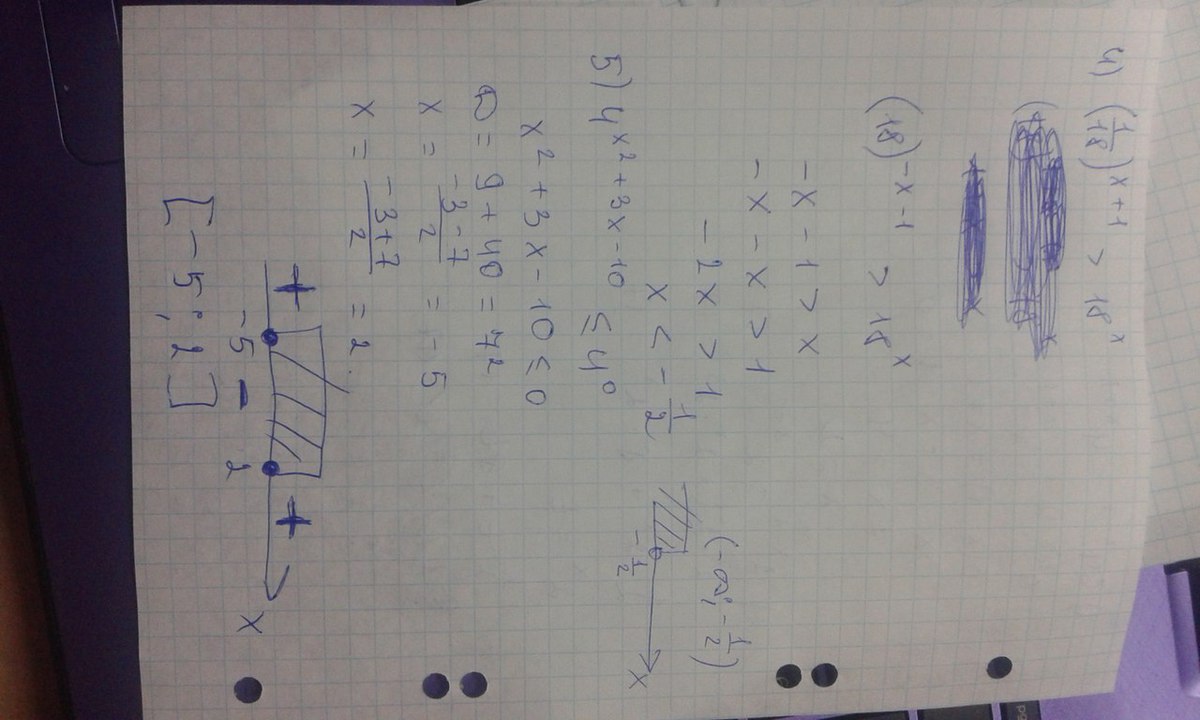 4) (1/18)^(x+1) > 18^x
(18)^(-x-1) > 18^x
-x - 1 > x
-x - x > 1
-2x > 1
x < -1/2
(-∞; -1/2)
-1/2 x
5) 4^(x²+3x-10) ≤ 4^0
x² + 3x - 10 ≤ 0
D = 9 + 40 = 7²
x = (-3-7)/2 = -5
x = (-3+7)/2 = 2
+ - +
-5 2 x
[-5; 2]